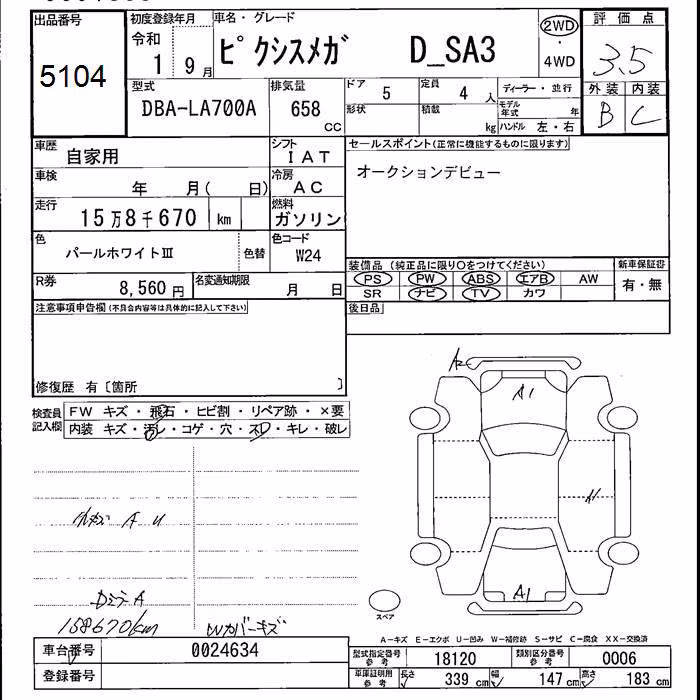 出品番号
5104
初度登録年月
令和
1 9月
車名・グレード
ピクシスメガ D_SA3
2WD
・
4WD
評価点
3.5
外装 内装
B C
型式
DBA-LA700A
排気量
658
CC
ドア 5
定員 4 人
ディーラー・並行
形状
積載
kg
モデル年式 年
ハンドル 左・右
車歴 自家用
シフト IAT
車検 年 月( 日)
冷房 AC
走行 15万8千670 km
燃料 ガソリン
色 パールホワイトⅢ
色替
色コード W24
R券 8,560 円
名変通知期限 月 日
セールスポイント(正常に機能するものに限ります)
オークションデビュー
装備品 (純正品に限り〇をつけてください)
PS PW ABS エアB AW
SR ナビ TV カワ
新車保証書
有・無
後日品
注意事項申告欄(不具合内容等は具体的に記入して下さい)
修復歴 有〔箇所 〕
検査員記入欄
FW キズ・飛石・ヒビ割・リペア跡・×要
内装 キズ・汚レ・コゲ・穴・スレ・キレ・破レ
A U
DミラA
158670km
Wカバーキズ
A2
A1
A1
スペア
A-キズ E-エクボ U-凹み W-補修跡 S-サビ C-腐食 XX-交換済
車台番号 0024634
登録番号
型式指定番号 参考 18120
類別区分番号 参考 0006
車庫証明用 参考 長さ 339 cm 幅 147 cm 高さ 183 cm